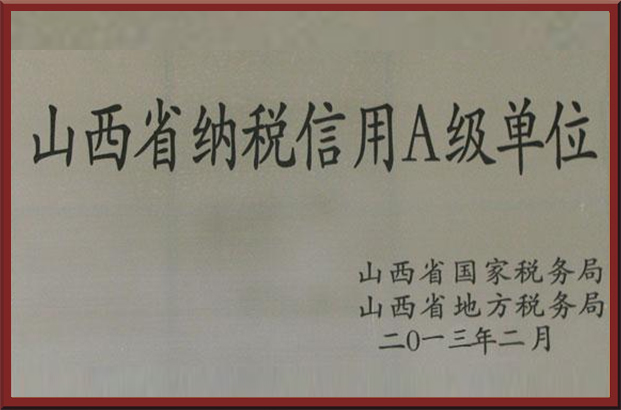 山西省纳税信用A级单位
山西省国家税务局
山西省地方税务局
二0一三年二月